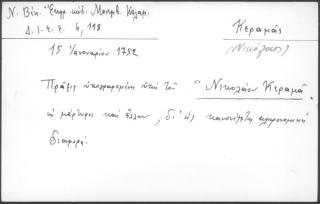 Ν. Βέη. Ἐκκλ. κώδ. Μακρ. Καλαμ.
Δ.Ι.Ε.Ε. 6, 198
Κεραμᾶς
(Νικόλαος)
15 Ἰανουαρίου 1752
Πρᾶξις ὑπογραφομένη ὑπὸ τοῦ "Νικολάου Κεραμᾶ"
ὡς μάρτυρος καὶ ἄλλων, δι' ἧς κανονίζεται κληρονομικὴ
διαφορά.